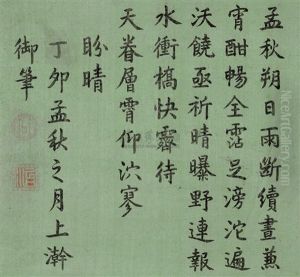 孟秋朔日雨斷續晝兼
宵酣暢全霑足滂沱遍
沃饒亟祈晴曝野連報
水衝橋快霽待
天眷層霄仰泬寥
盼晴
丁卯孟秋之月上澣
御筆
NiceArtGallery.com